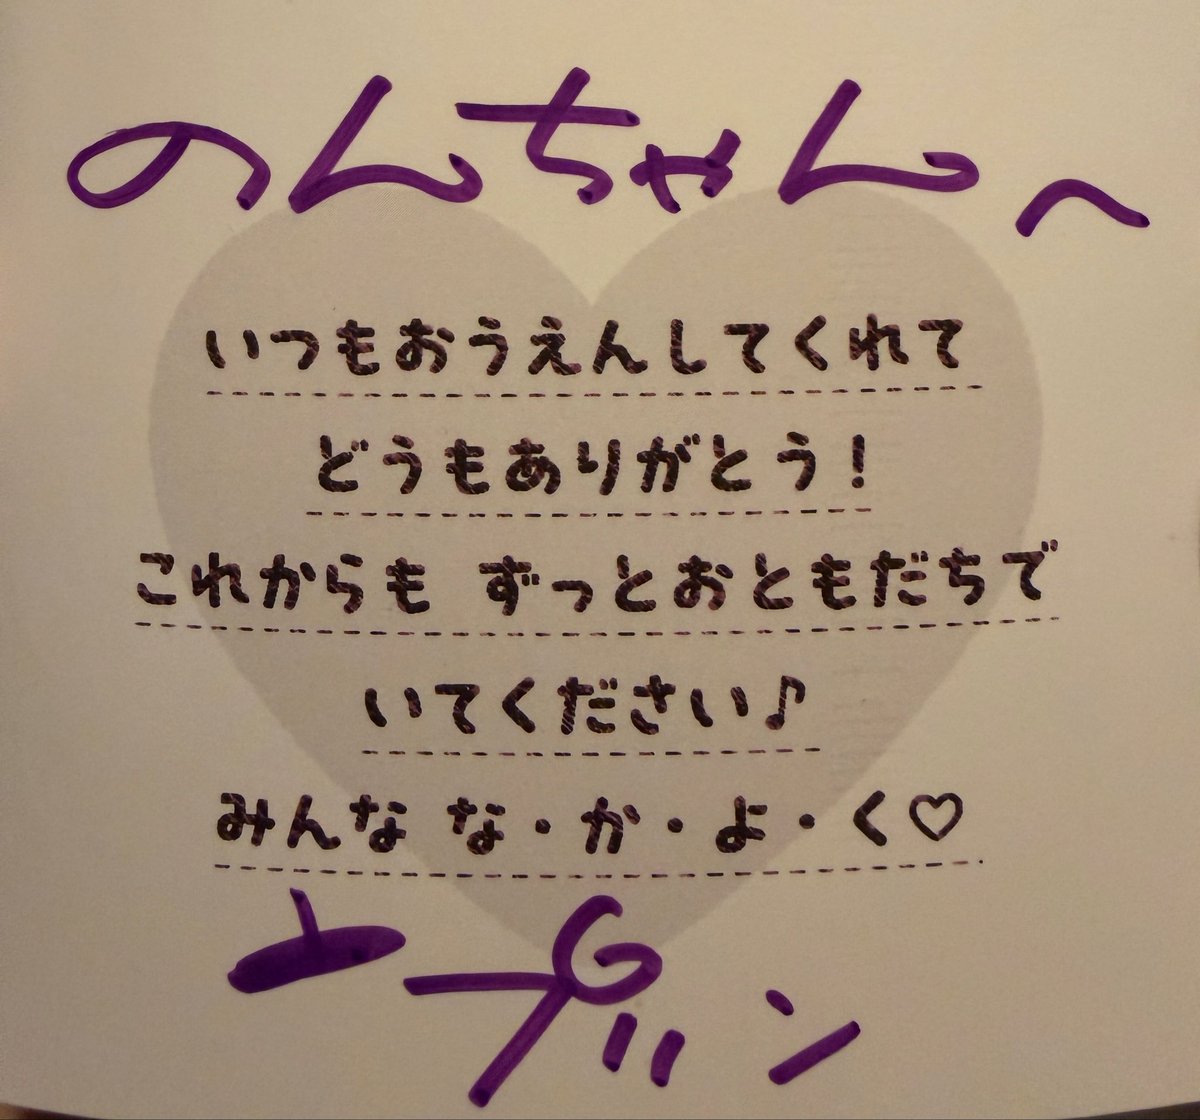 のんちゃんへ
いつもおうえんしてくれて
どうもありがとう!
これからも ずっとおともだちで
いてください♪
みんな な・か・よ・く♡
プリン